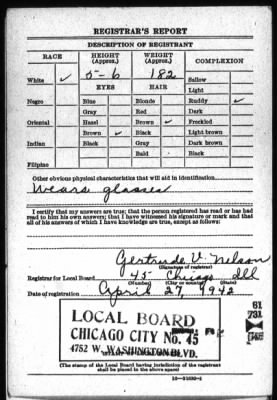 REGISTRAR'S REPORT
DESCRIPTION OF REGISTRANT
RACE HEIGHT (Approx.) WEIGHT (Approx.) COMPLEXION
White ✓ 5-6 182 Sallow
EYES HAIR Light
Negro Blue Blonde Ruddy ✓
Gray Red Dark
Oriental Hazel Brown ✓ Freckled
Brown ✓ Black Light brown
Indian Black Gray Dark brown
Bald Black
Filipino
Other obvious physical characteristics that will aid in identification
Wears glasses
I certify that my answers are true; that the person registered has read or has had
read to him his own answers; that I have witnessed his signature or mark and that
all of his answers of which I have knowledge are true, except as follows:
Gertrude V. Nelson
(Signature of registrar)
Registrar for Local Board 45 Chicago Ill
(Number) (City or county) (State)
Date of registration April 27 1942
61
731
LOCAL BOARD
CHICAGO CITY No. 45
4752 W. WASHINGTON BLVD.
(The stamp of the Local Board having jurisdiction of the registrant
shall be placed in the above space)